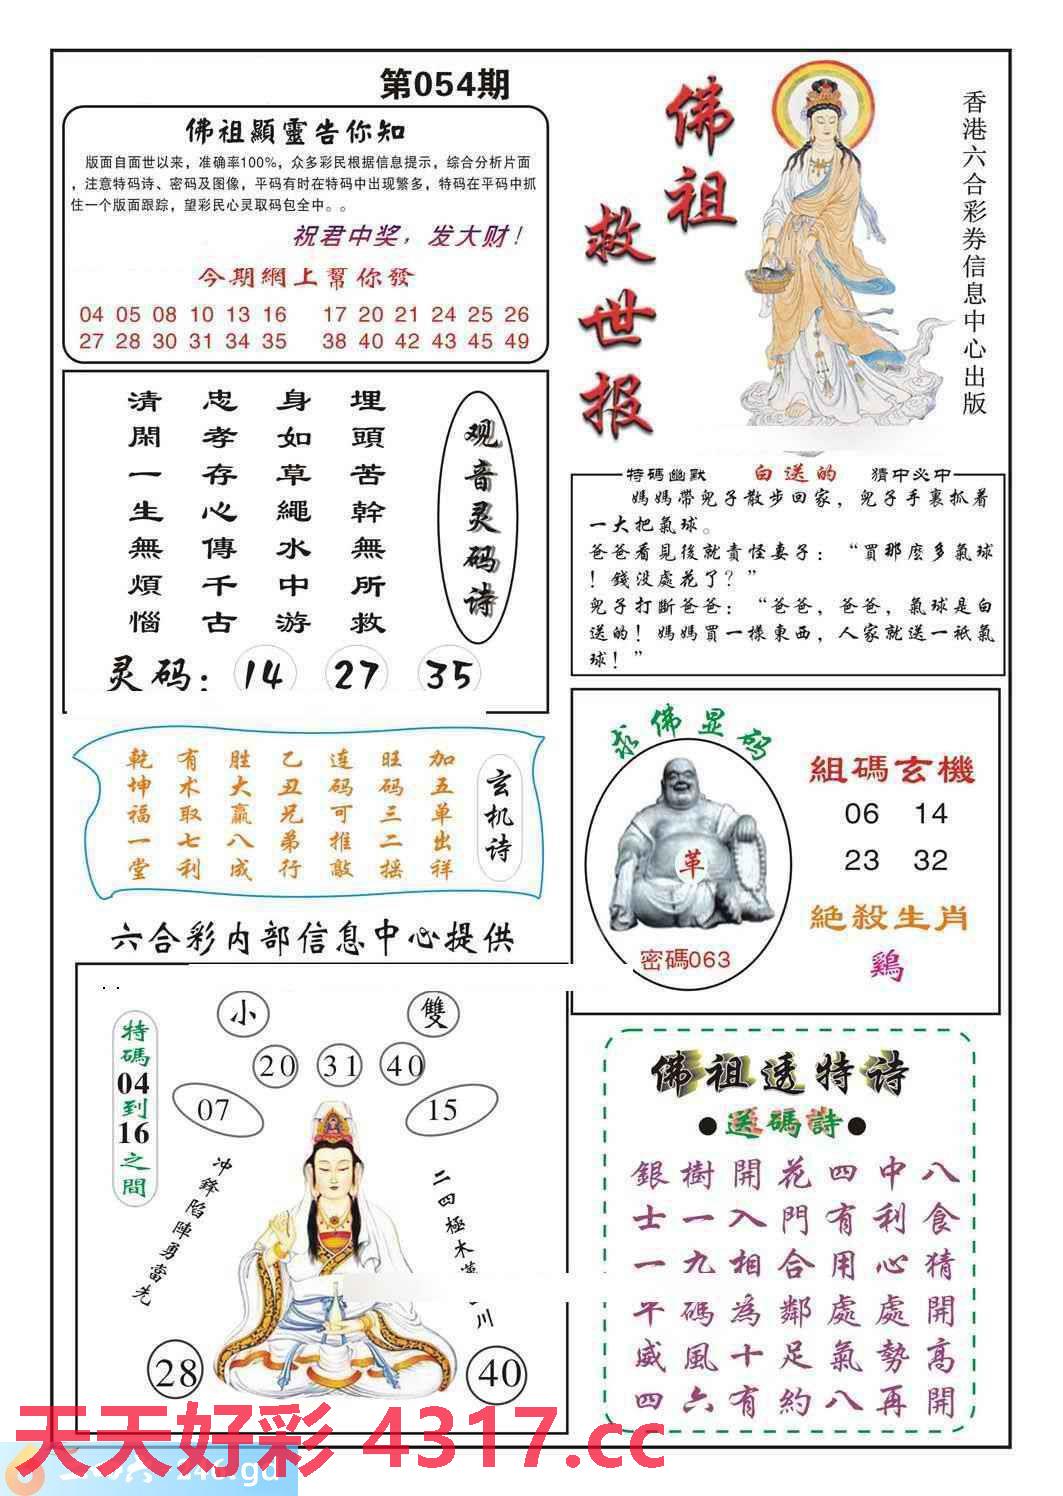 第054期
佛祖顯靈告你知
版面自面世以来，准确率100%，众多彩民根据信息提示，综合分析片面
，注意特码诗、密码及图像，平码有时在特码中出现繁多，特码在平码中抓
住一个版面跟踪，望彩民心灵取码包全中。。
祝君中奖，发大财！
今期網上幫你發
04 05 08 10 13 16 17 20 21 24 25 26
27 28 30 31 34 35 38 40 42 43 45 49
佛祖
救世报
香港六合彩券信息中心出版
观音灵码诗
埋頭苦幹無所救
身如草繩水中游
忠孝存心傳千古
清閑一生無煩惱
灵码：14 27 35
特碼幽默 白送的 猜中必中
媽媽帶兒子散步回家，兒子手裏抓着
一大把氣球。
爸爸看見後就責怪妻子：“買那麽多氣球
！錢没處花了？”
兒子打斷爸爸：“爸爸，爸爸，氣球是白
送的！媽媽買一樣東西，人家就送一祇氣
球！”
玄机诗
加五单出祥
旺码三二摇
连码可推敲
乙丑兄弟行
胜大赢八成
有术取七利
乾坤福一堂
求佛显码
革
密碼063
組碼玄機
06 14
23 32
絶殺生肖
鷄
六合彩内部信息中心提供
特碼04到16之間
小 雙
20 31 40
07 15
冲鋒陷陣勇當先
二四極木
川
28 40
佛祖透特诗
●送碼詩●
銀樹開花四中八
士一入門有利食
一九相合用心猜
平碼為鄰處處開
威風十足氣勢高
四六有約八再開
天天好彩 4317.cc
246.gd